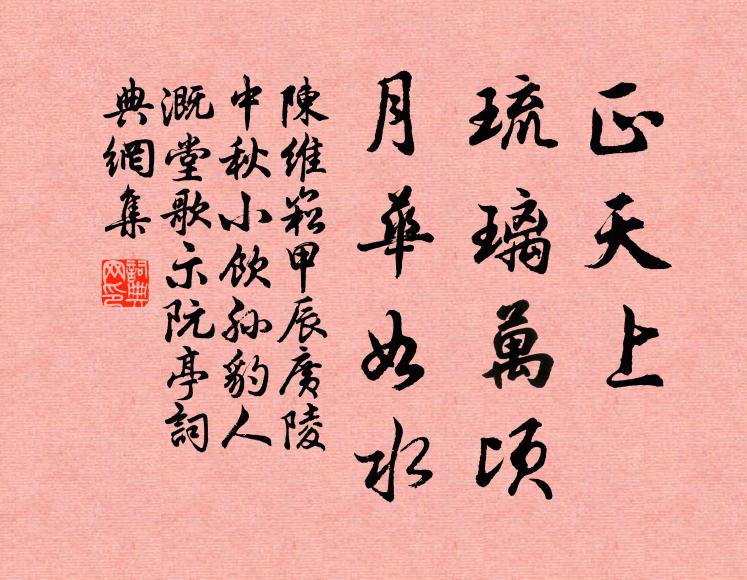 正天上
琉璃萬頃
月華如水
陳維崧甲辰廣陵
中秋小飲孫豹人
溉堂歌示阮亭詞
典網集
詞典網印